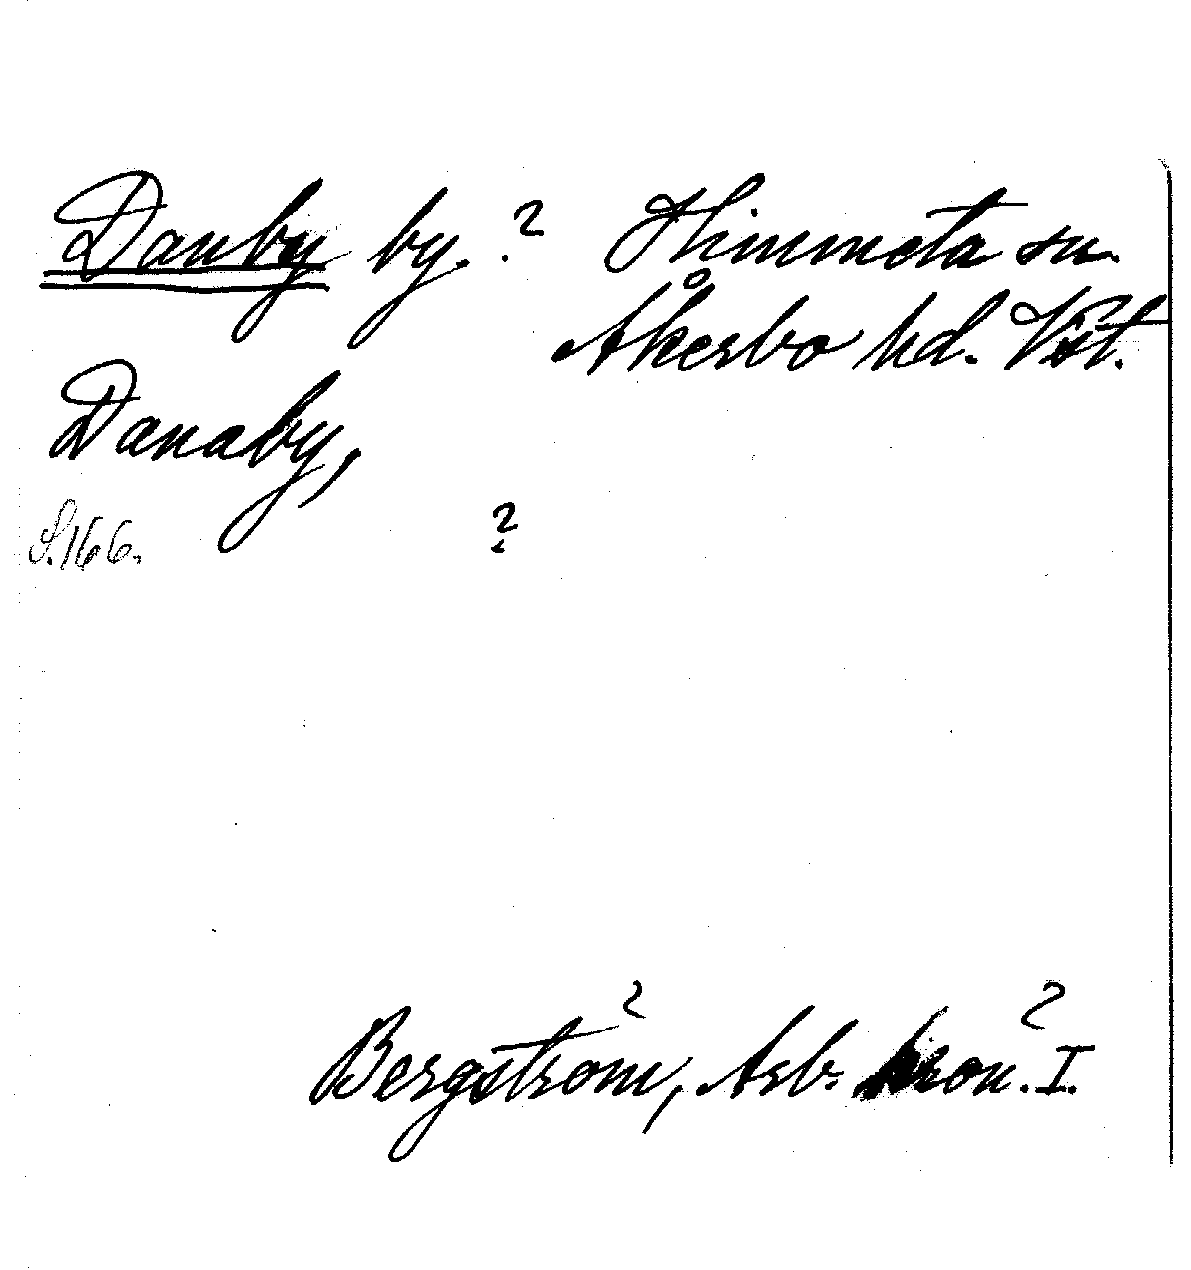 Danby by. ? Himmeta sn.
Åkerbo hd. Vstl.
Danaby,
S. 166. ?
Bergström, Arb. kron. I.